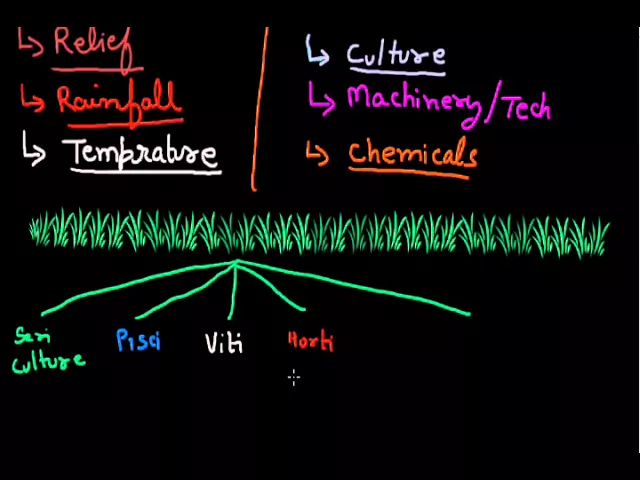 Relief
Rainfall
Temprature
Culture
Machinery/Tech
Chemicals
Seri
Culture
Pisci
Viti
Horti